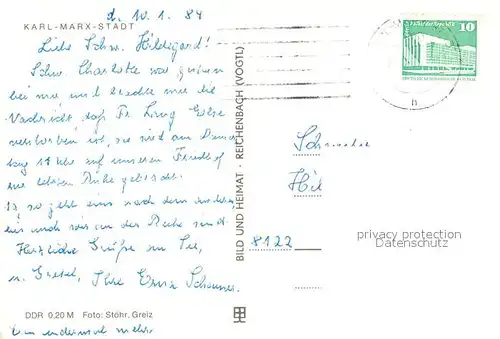 d. 10.1.84
KARL-MARX-STADT
Liebe Schw. Hildegard!
Schw. Charlotte war gestern
bei mir und brachte mir die
Nachricht daß Fr. Lang
verstorben ist, sie wird am
tag 14 Uhr auf unserem Friedhof
zur letzten Ruhe gebracht.
So geht eins nach dem anderen,
bis auch wir an der Reihe sind.
Herzliche Grüße an Sie,
u. Gretel, Ihre Erna
DDR 0,20 M Foto: Stöhr, Greiz
Ein andermal mehr.
BILD UND HEIMAT · REICHENBACH (VOGTL)
10
DEUTSCHE DEMOKRATISCHE REPUBLIK
n
Schwester
Hil
8122
privacy protection
Datenschutz